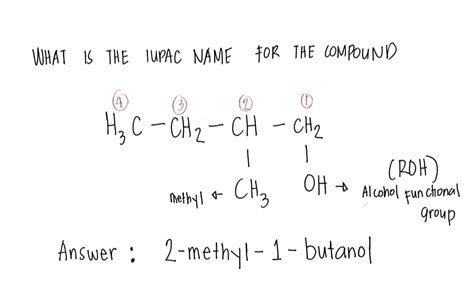 WHAT IS THE IUPAC NAME FOR THE COMPOUND
④ ③ ② ①
H₃C – CH₂ – CH – CH₂
| |
methyl ← CH₃ OH → (ROH)
Alcohol functional
group
Answer : 2-methyl-1-butanol